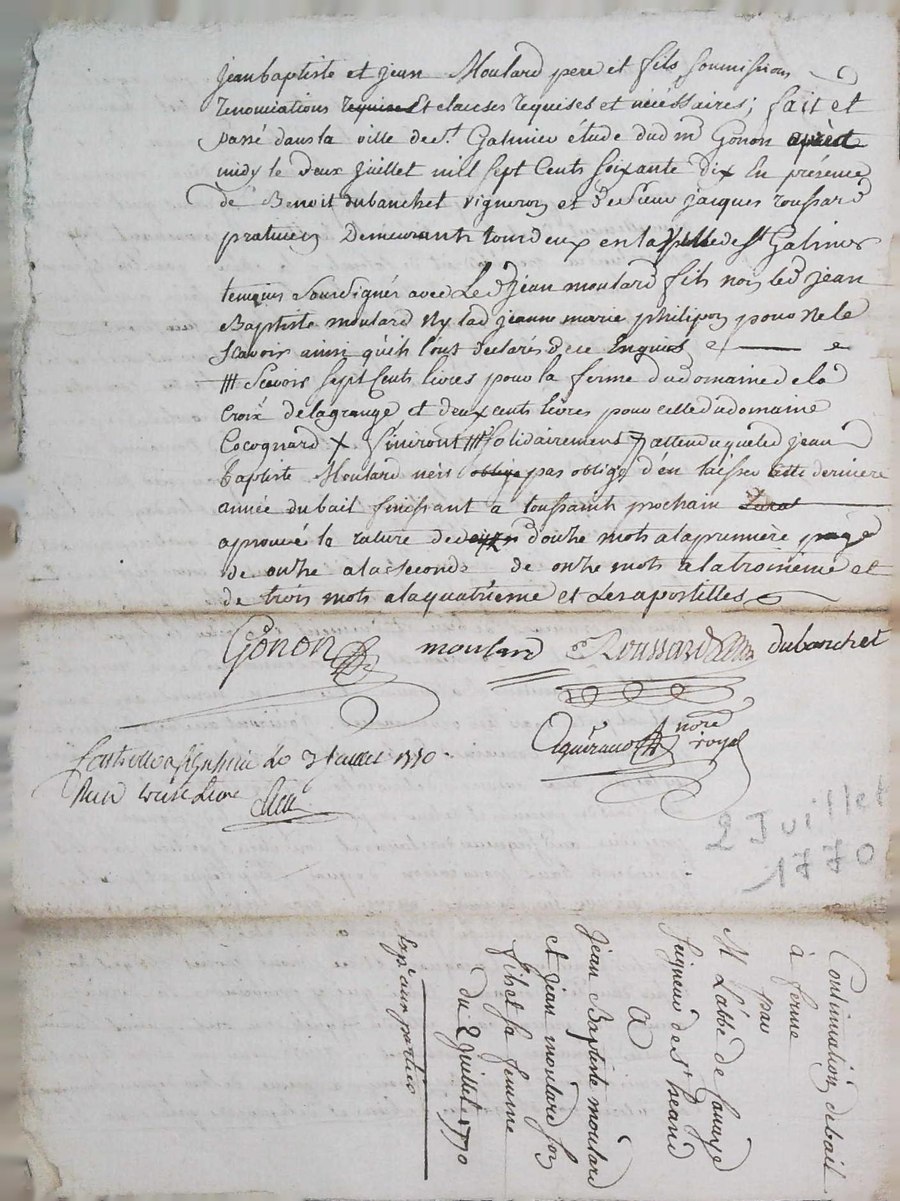 Jean baptiste et jean Moulard pere et fils soumissions
renonciations requises et clauses requises et nécéssaires; fait et
passé dans la ville de St. Galmier étude dud. me Gonon
midy le deux Juillet mil sept Cents soixante dix En présence
de Benoit dubanchet vigneron et de sieur jacques roussard
praticien Demeurants tous deux en la ville de St Galmier
temoins soussignés avec Led. jean moulard fils non led. jean
Baptiste moulard ny lad. jeanne marie philipon pour ne le
scavoir ainsi qu'ils l'ont declarés de ce Enquis
scavoir sept Cents livres pour la ferme du domaine de la
Croix de lagrange et deux cents livres pour celle du domaine
Cocognard X finiront solidairement attendu que led. jean
baptiste Moulard n'est oblige pas obligé d'en laisser cette derniere
année du bail finissant a toussaints prochain
aprouvé la rature de d'onze mots a la premiere page
de onze a la seconde de onze mots a la troisieme et
de trois mots a la quatrieme et les apostilles
Gonon moulard Roussard dubanchet
nore
royal
le 3 juillet 1770
Reçu treize Livre
2 Juillet
1770
Continuation de bail
à ferme
par
Mr L'abbé de
Seigneur de St heand
A
jean Baptiste moulard
et jean moulard son
fils et sa femme
du 2 juillet 1770
Expé aux parties